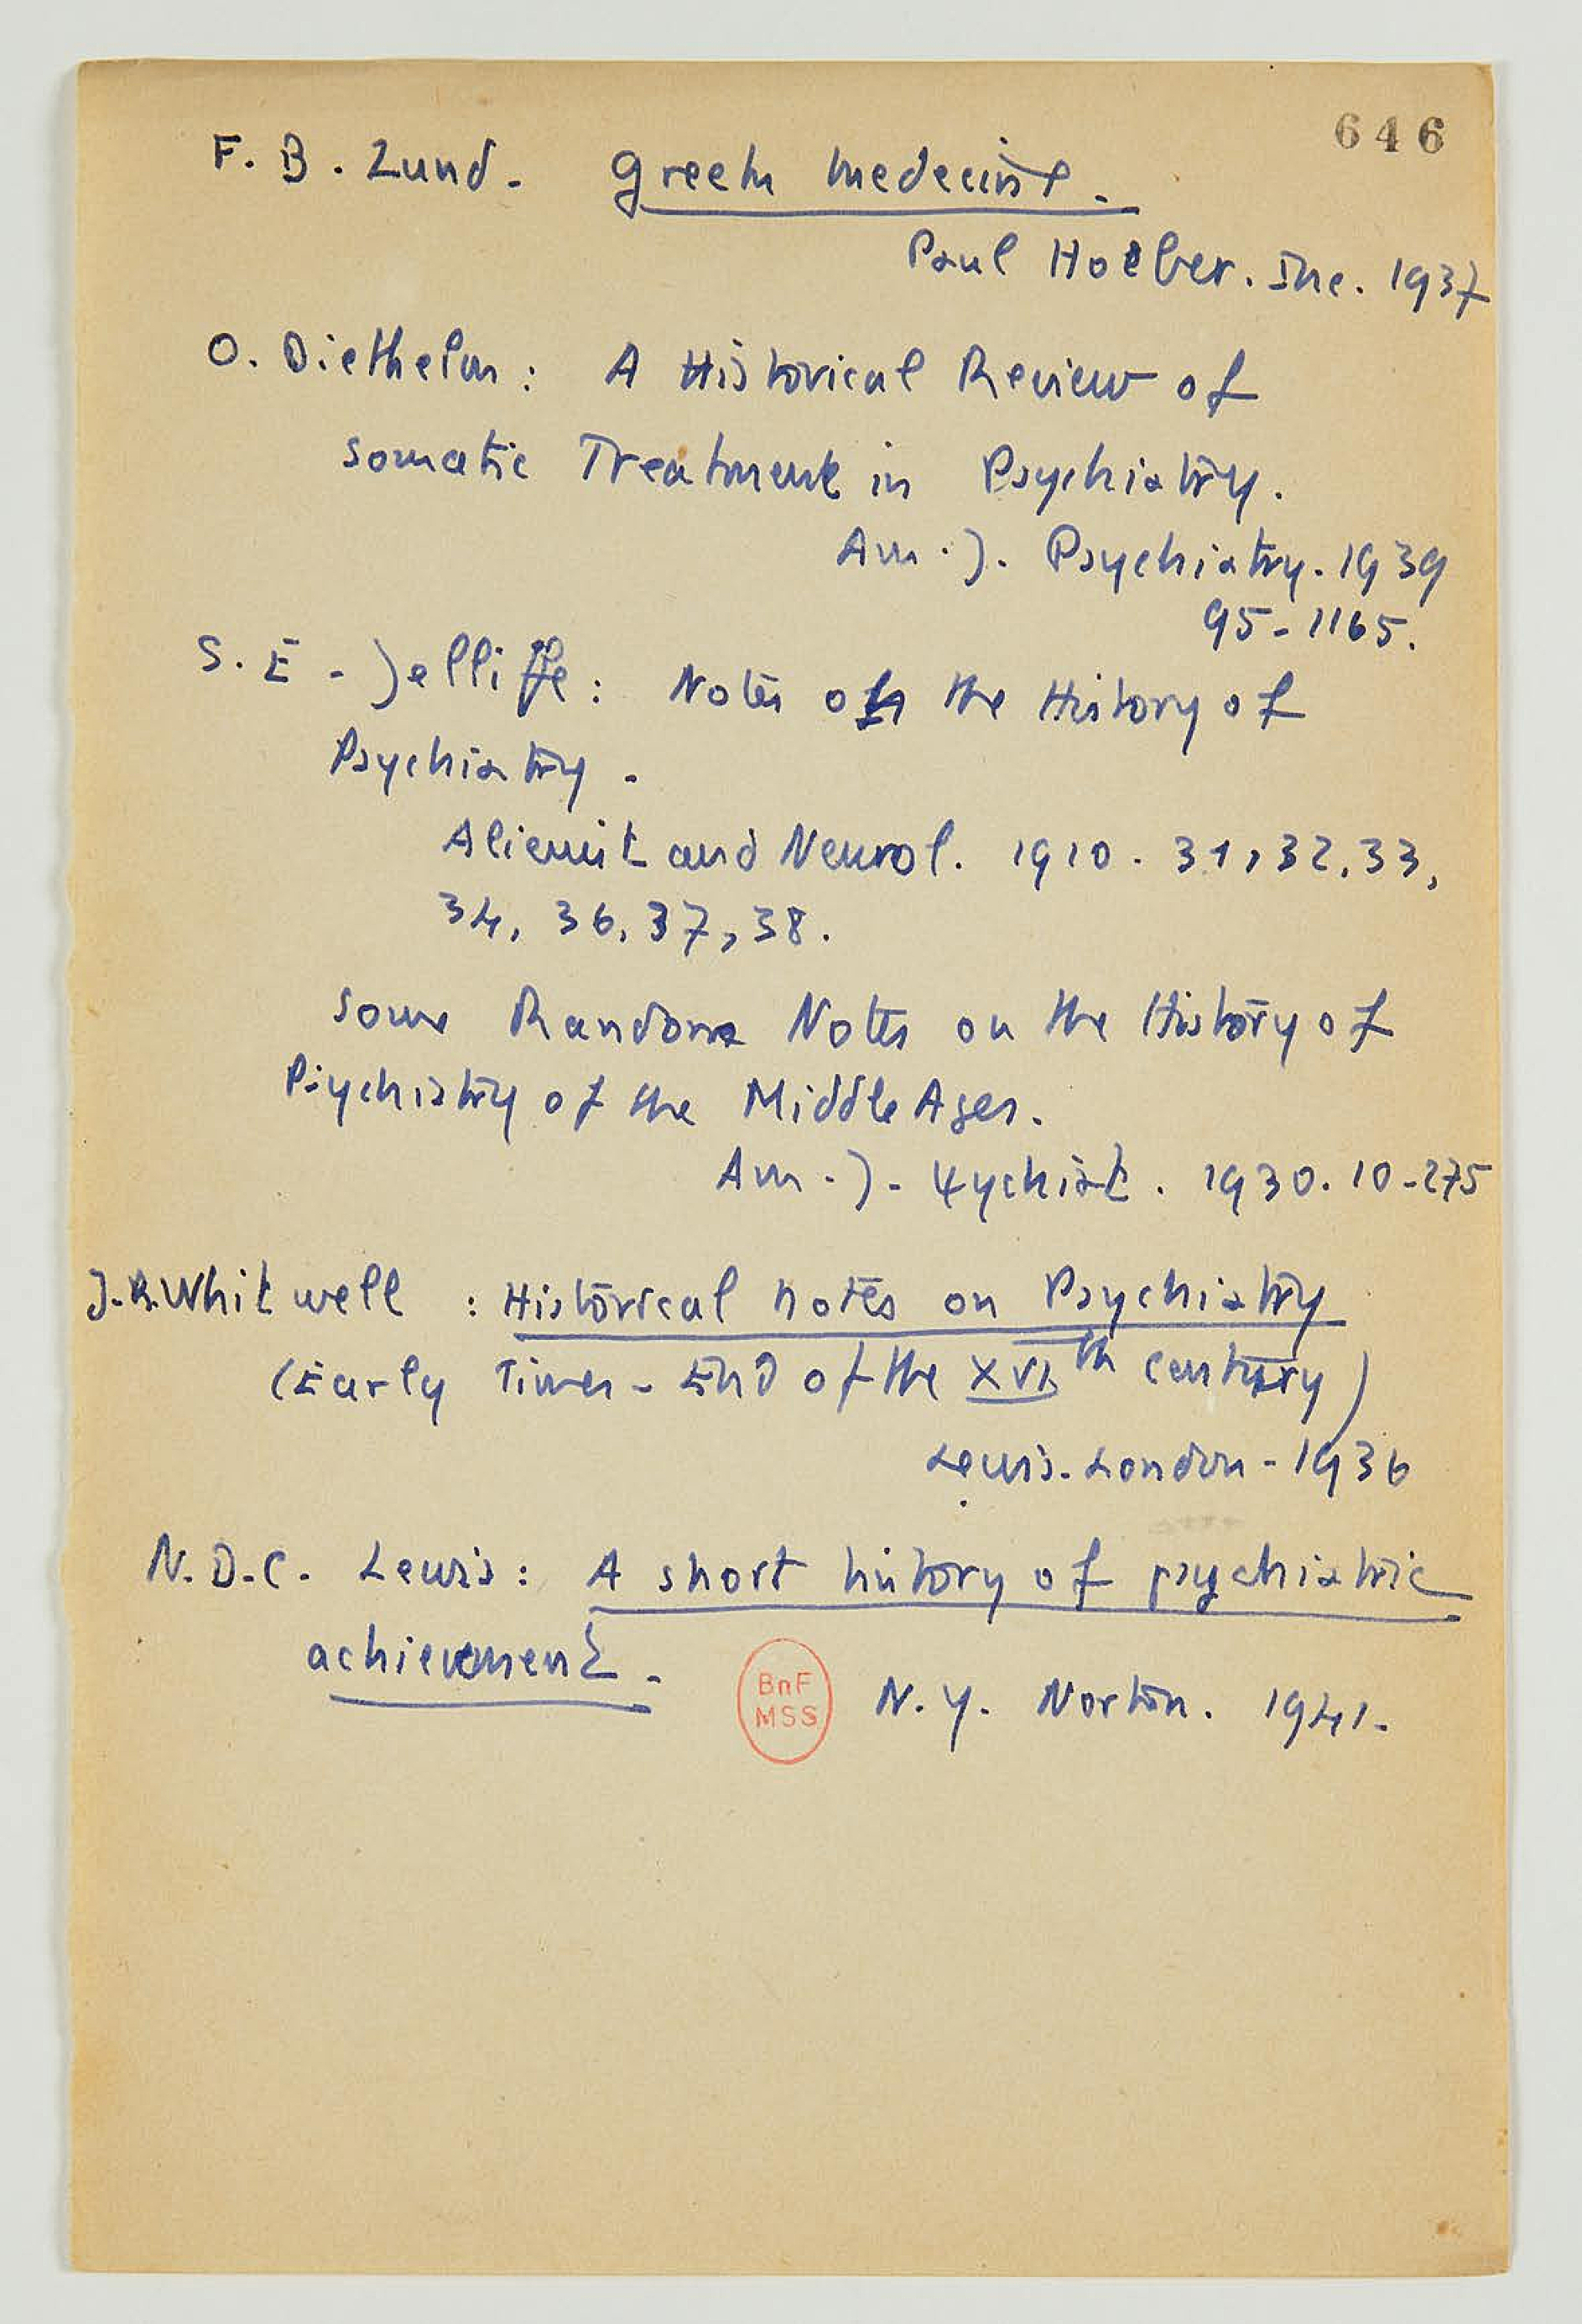 646
F. B. Lund. Greek medecine.
Paul Hoeber. Inc. 1937
O. Diethelm : A Historical Review of
somatic Treatment in Psychiatry.
Am. J. Psychiatry. 1939
95-1165.
S. E - Jelliffe : Notes on the History of
Psychiatry .
Alienist and Neurol. 1910 . 31, 32, 33,
34, 36, 37, 38.
Some Random Notes on the History of
Psychiatry of the Middle Ages.
Am. J. Psychiat. 1930. 10-275
J.R. Whitwell : Historical notes on Psychiatry
(Early Times - End of the XVIth century)
Lewis. London - 1936
N. D. C. Lewis : A short history of psychiatric
achievement .
N. Y. Norton. 1941.
BnF
MSS